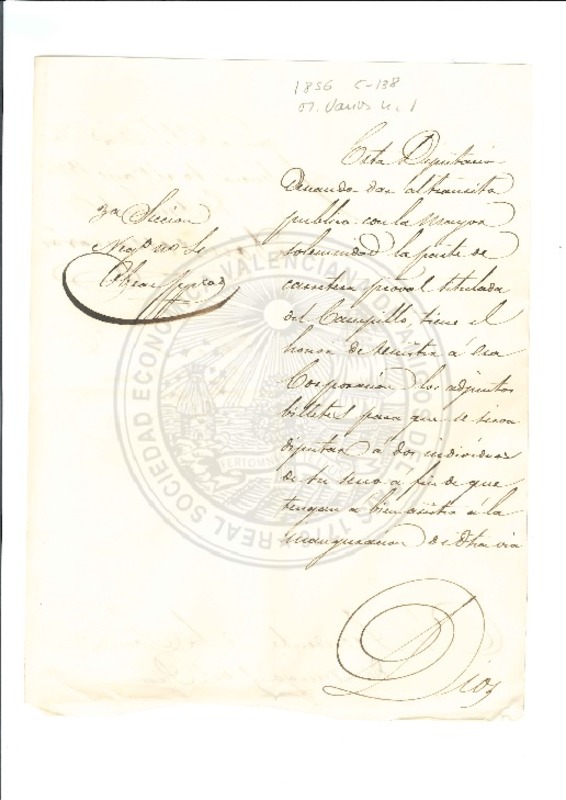 1856 C-138
07. Varios n. 1
3a Seccion
Negdo no de
Obras
Esta Diputacion
deseando dar al transito
publico con la mayor
solemnidad la parte de
carretera proval titulada
del Campillo tiene el
honor de remitir á esa
Corporacion los adjuntos
billetes para que se sirva
diputar á dos individuos
de su seno á fin de que
tengan á bien asistir á la
inauguracion de dha via
Dios
REAL SOCIEDAD ECONOMICA VALENCIANA DE AMIGOS DEL PAIS 1776